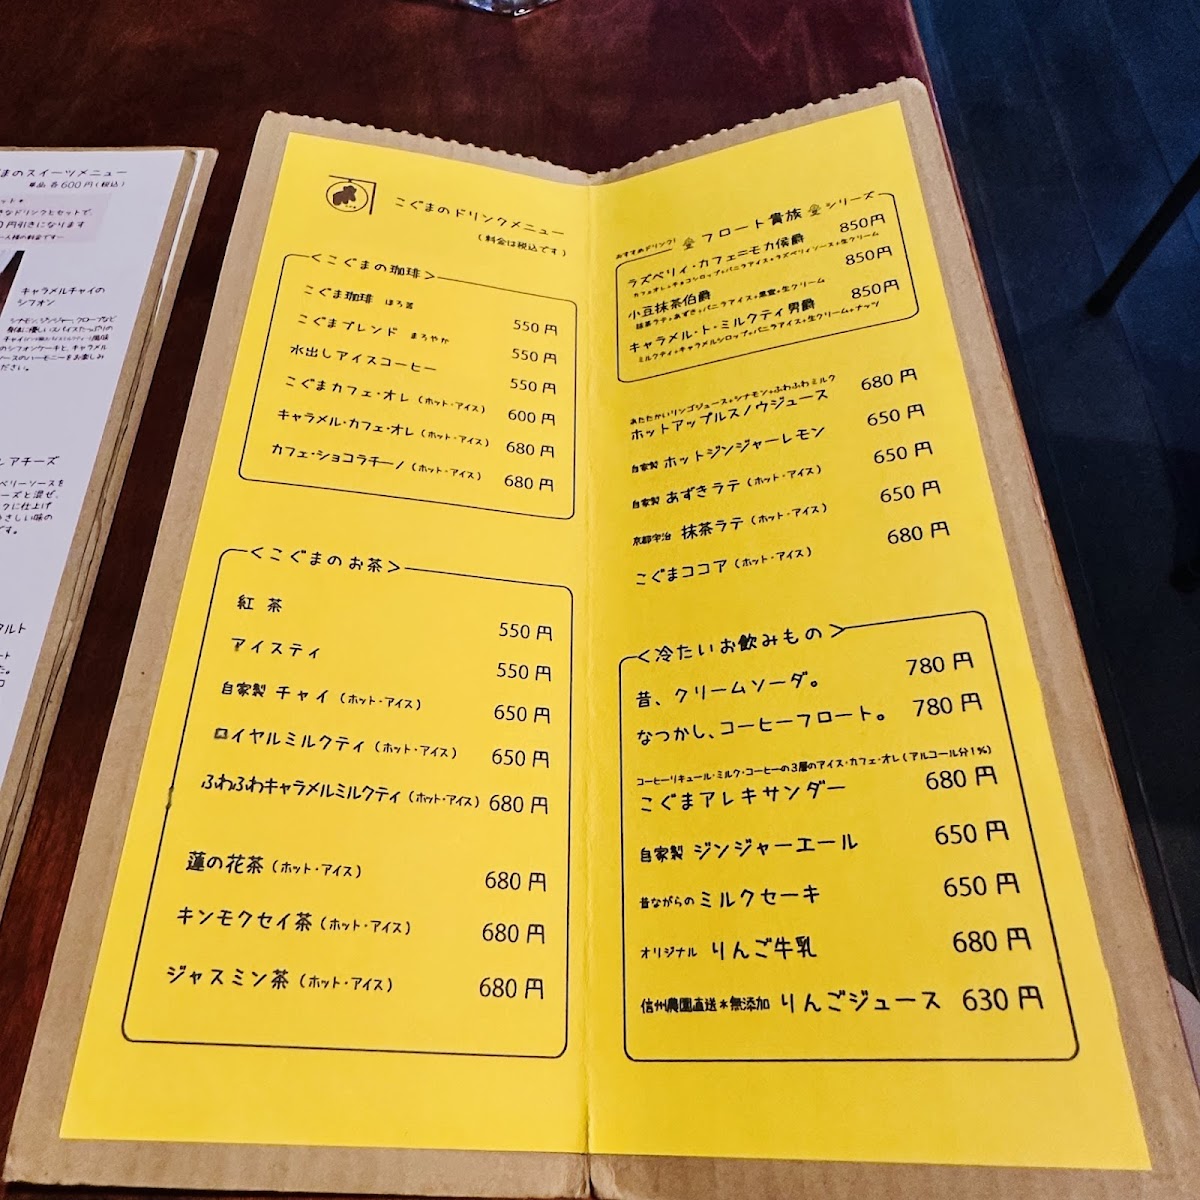 まのスイーツメニュー
単品 各600円(税込)
ット*
きなドリンクとセットで、
0円引きになります
キャラメルチャイの
シフォン
シナモン、ジンジャー、クローブなど
身体に優しいスパイスたっぷりの
のシフォンケーキと、キャラメル
ソースのハーモニーをお楽しみ
ださい。
アチーズ
ベリーソースを
ーズと混ぜ、
クに仕上げ
さしい味の
です。
タルト
こぐまのドリンクメニュー
(料金は税込です)
<こぐまの珈琲>
こぐま珈琲 ほろ苦 550円
こぐまブレンド まろやか 550円
水出しアイスコーヒー 550円
こぐまカフェ・オレ(ホット・アイス) 600円
キャラメル・カフェ・オレ(ホット・アイス) 680円
カフェ・ショコラチーノ(ホット・アイス) 680円
<こぐまのお茶>
紅 茶 550円
アイスティ 550円
自家製 チャイ(ホット・アイス) 650円
ロイヤルミルクティ(ホット・アイス) 650円
ふわふわキャラメルミルクティ(ホット・アイス) 680円
蓮の花茶(ホット・アイス) 680円
キンモクセイ茶(ホット・アイス) 680円
ジャスミン茶(ホット・アイス) 680円
おすすめドリンク! フロート貴族 シリーズ
ラズベリィ・カフェ=モカ侯爵 850円
カフェオレ+チョコシロップ+バニラアイス+ラズベリィソース+生クリーム
小豆抹茶伯爵 850円
抹茶ラテ+あずき+バニラアイス+黒蜜+生クリーム
キャラメル・ト・ミルクティ男爵 850円
ミルクティ+キャラメルシロップ+バニラアイス+生クリーム+ナッツ
あたたかいリンゴジュース+シナモン+ふわふわミルク
ホットアップルスノウジュース 680円
自家製 ホットジンジャーレモン 650円
自家製 あずきラテ(ホット・アイス) 650円
京都宇治 抹茶ラテ(ホット・アイス) 650円
こぐまココア(ホット・アイス) 680円
<冷たいお飲みもの>
昔、クリームソーダ。 780円
なつかし、コーヒーフロート。 780円
コーヒーリキュール・ミルク・コーヒーの3層のアイス・カフェ・オレ(アルコール分1%)
こぐまアレキサンダー 680円
自家製 ジンジャーエール 650円
昔ながらの ミルクセーキ 650円
オリジナル りんご牛乳 680円
信州農園直送*無添加 りんごジュース 630円